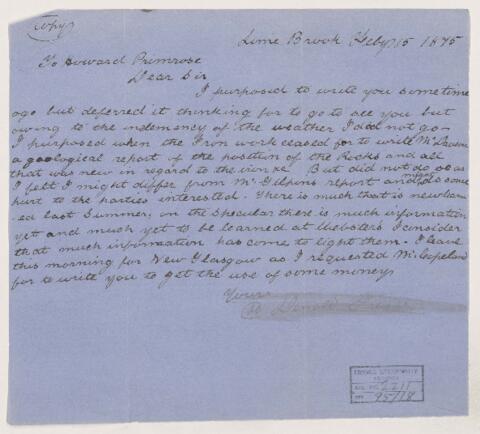 Copy
Lime Brook Feby 15 1875
To Howard Primrose
Dear Sir
I purposed to write you sometime
ago but deferred it thinking for to go to see you but
owing to the indemency of the weather I did not go
I purposed when the Iron work ceased for to write Mr
a geological report of the position of the Rocks and all
that was new in regard to the iron &c. But did not do so as
I felt I might differ from Mr Gilpins report and might do some
hurt to the parties interested. There is much that is new learn
ed last Summer, on the Specular there is much information
yet and much yet to be learned at Websters I consider
that much information has come to light there. I leave
this morning for New Glasgow as I requested Mr Copeland
for to write you to get the use of some money
Yours
ARCHIVES
2211
95/18